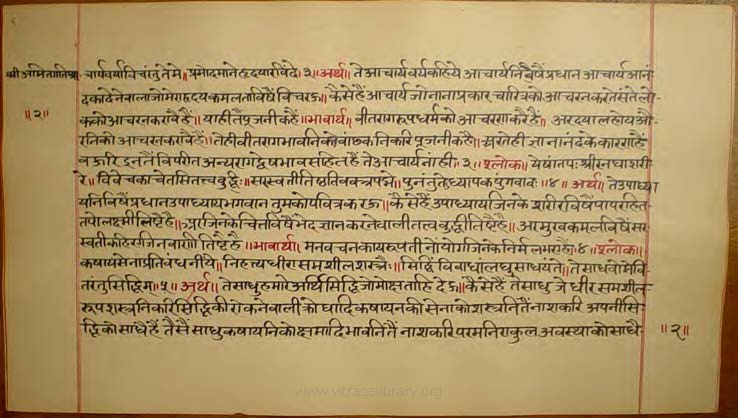 श्री अमितगति श्रा. चार्यवर्या विचरंतु ते मे॥ प्रमोदमाने हृदयारविंदे ३॥ अर्थ॥ ते आचार्यवर्य कहिये आचार्यनिविषैं प्रधान आचार्य आनं
दका देनेवाला जो मेरा हृदयकमल ताविषैं विचरऊ॥ कैसे हैं आचार्य जो नाना प्रकार चारित्रको आचरन करते संते लो
॥२॥ कको आचरन करावैं हैं॥ याही तैं पूजनीक हैं॥ भावार्थ॥ वीतरागरूप धर्मको आचरण करै हैं॥ अर दयाल होय औ
रनिको आचरन करावैं हैं॥ तेही वीतरागभावनिको वांछकनिकरि पूजनीक हैं॥ अर तेही ज्ञानानंदके कारण हैं
व करि इनतैं विपरीत अन्य रागद्वेषभावसहित हैं ते आचार्य नाही॥३॥ श्लोक॥ येषां तपः श्रीरनघा शरी
रे॥ विवेचका चेतसि तत्त्वबुद्धिः॥ सरस्वती तिष्ठति वक्त्रपद्मे॥ पुनंतु तेऽध्यापकपुंगवा वः॥४॥ अर्थ॥ ते उपाध्या
यनिविषैं प्रधान उपाध्याय भगवान तुमको पवित्र करऊ॥ कैसे हैं उपाध्याय जिनके शरीरविषैं पापरहित
तपोलक्ष्मी तिष्ठै है॥ अर जिनके चित्तविषैं भेदज्ञान करनेवाली तत्वबुद्धी तिष्ठै है॥ अर मुखकमलविषैं सर
स्वती कहिए जिनवाणी तिष्ठै है॥ भावार्थ॥ मन वचन काय रूप तीनों योग जिनके निर्मल भए हैं॥४॥ श्लोक॥
कषायसेनां प्रतिबंधनीये॥ निहत्य धीराः समशीलशस्त्रैः॥ सिद्धिं विबाधां लघु साधयंते॥ ते साधवो मे वि
तरंतु सिद्धिम्॥५॥ अर्थ॥ ते साधु हमारे अर्थि सिद्धि जो मोक्ष ताहि देऊ॥ कैसे हैं ते साधु जे धीर समशील
रूप शस्त्रनिकरि सिद्धिकी रोकनेवाली क्रोधादि कषायनकी सेनाको शस्त्रनितैं नाश करि अपनी सि
द्धिको साधै हैं तैसैं साधु कषायनिको क्षमादि भावनितैं नाश करि परम निराकुल अवस्थाको साधै- ॥२॥
www.vitragelibrary.org